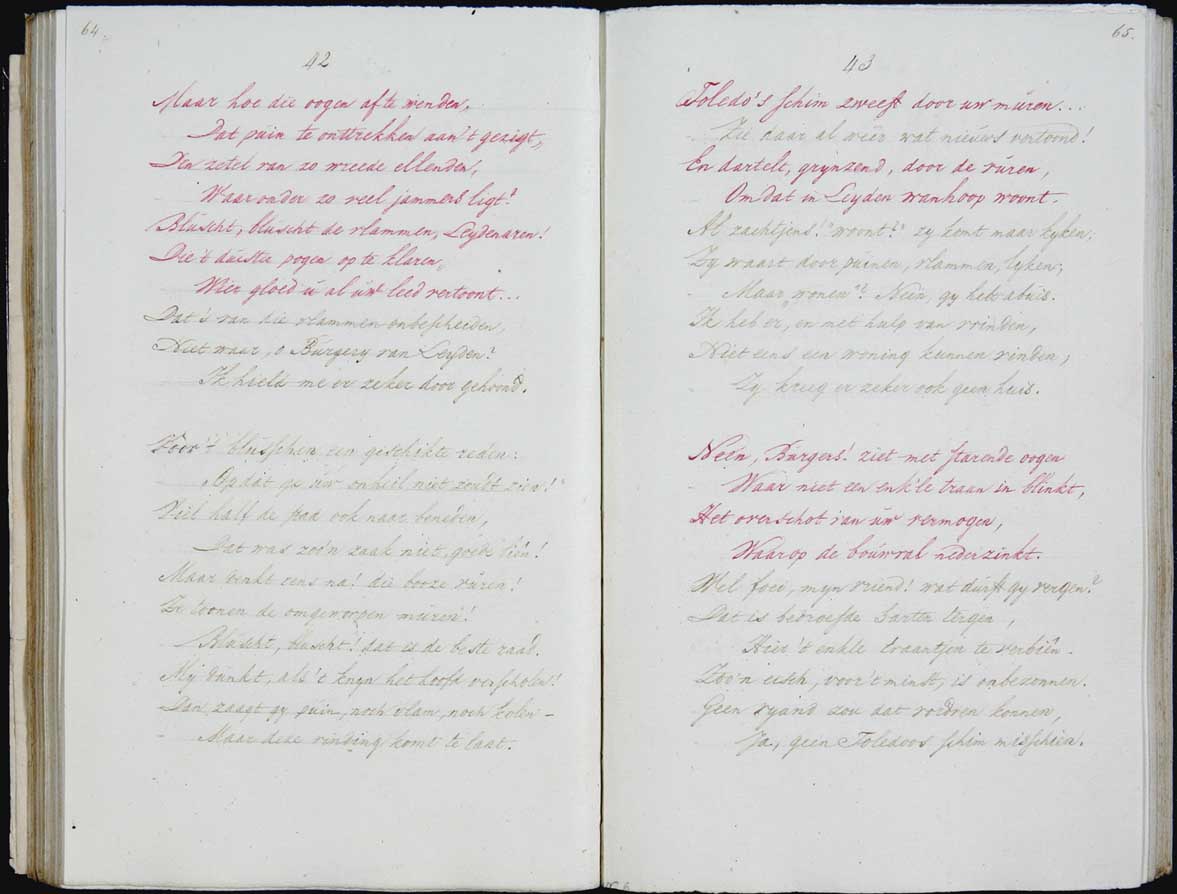 64.
42
Maar hoe die oogen af te wenden,
Dat puin te onttrekken aan 't gezigt,
Den zetel van zo wreede ellenden,
Waaronder zo veel jammers ligt!
Bluscht, bluscht de vlammen, Leydenaren!
Die 't duister pogen op te klaren,
Wier gloed u al uw leed vertoont...
Dat's van die vlammen onbescheeden,
Niet waar, o Burgery van Leyden?
Ik hield me er zeker door gehoond.
Voor 't blusschen, een geschikte reden:
„Opdat ge uw onheil niet zoudt zien!"
Viel half de stad ook naar beneden,
Dat was zoo'n zaak niet, goede liên!
Maar denkt eens na! die booze vuren!
Ze toonen de omgeworpen muren!
Bluscht, bluscht! dat is de beste raad.
Mij dunkt, als 't knyn het hoofd verscholen!
Dan zaagt gy puin, noch vlam, noch kolen –
Maar deze vinding komt te laat.
65.
43
Toledo's schim zweeft door uw muren...
Zie daar al weer wat nieuws vertoond!
En dartelt, grynzend, door de vuren,
Omdat in Leyden wanhoop woont.
Al zachtjens! "woont?" zy komt maar kyken.
Zy waart door puinen, vlammen, lyken;
Maar „wonen"? Neen, gy heb abuis.
Ik heb er, en met hulp van vrinden,
Niet eens een woning kunnen vinden;
Zy krieg er zeker ook geen huis.
Neen, Burgers! ziet met starende oogen
Waar niet een enk'le traan in blinkt,
Het overschot van uw vermogen,
Waarop de bouwval nederzinkt.
Wel foei, myn vriend! wat durft gy vergen?
Dat is bedroefde harten tergen,
Hier 't enkle traantjen te verbiên.
Zoo'n eisch, voor 't minst, is onbezonnen.
Geen vyand zou dat vordren konnen,
Ja, geen Toledoos schim misschien.